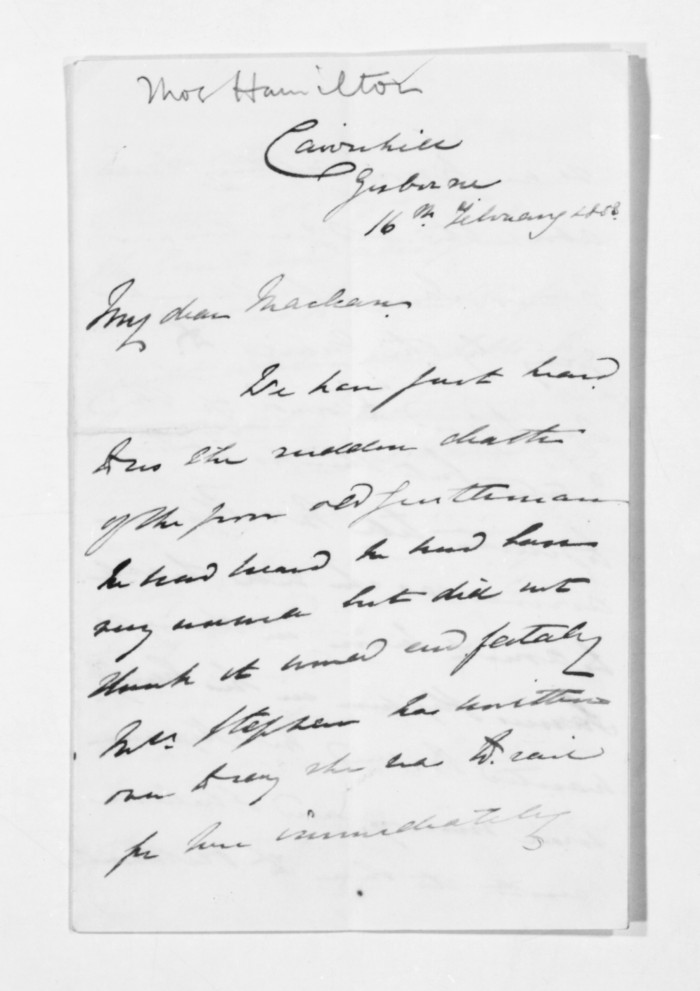 Thos Hamilton
Cairnhill
Gisborne
16th February
My dear Maclean
We have just heard
the sudden death
of the poor old gentleman
We had heard he had been
very unwell but did not
think it would end fatally
Mrs. Stephen has written
over to say she was to sail
for here immediately